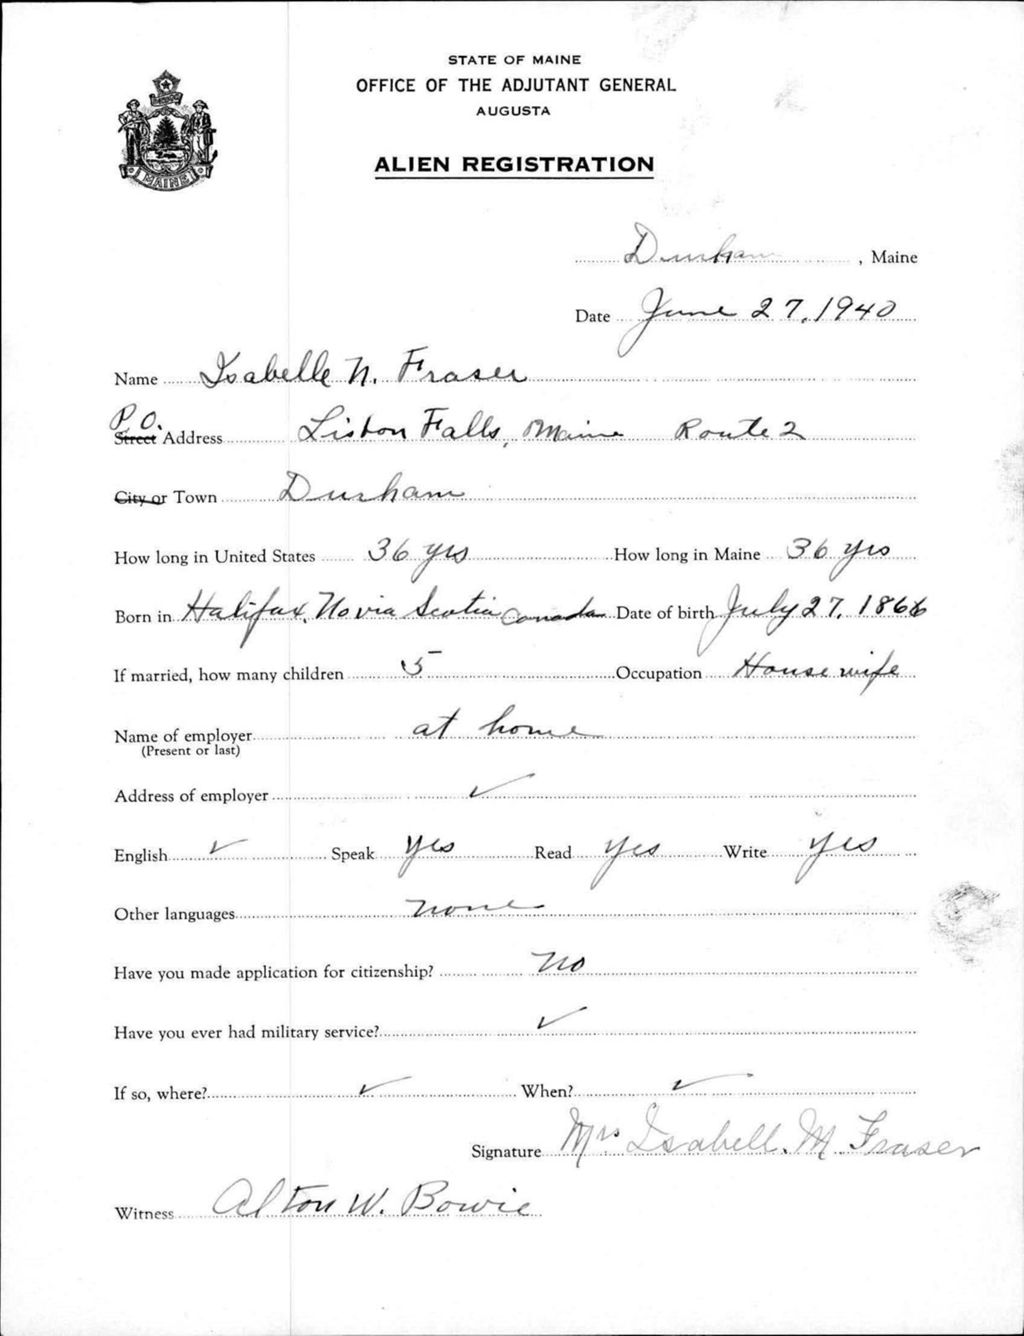 STATE OF MAINE
OFFICE OF THE ADJUTANT GENERAL
AUGUSTA
ALIEN REGISTRATION
MAINE
Durham, Maine
Date June 27, 1940
Name Isabelle N. Fraser
P.O.
Street Address Lisbon Falls, Maine Route 2
City or Town Durham
How long in United States 36 yrs How long in Maine 36 yrs
Born in Halifax, Novia Scotia Canada Date of birth July 27, 1866
If married, how many children 5 Occupation Housewife
Name of employer at home
(Present or last)
Address of employer ✓
English ✓ Speak yes Read yes Write yes
Other languages none
Have you made application for citizenship? No
Have you ever had military service? ✓
If so, where? ✓ When? ✓
Signature Mrs Isabell. M. Fraser
Witness Alton W. Bowie